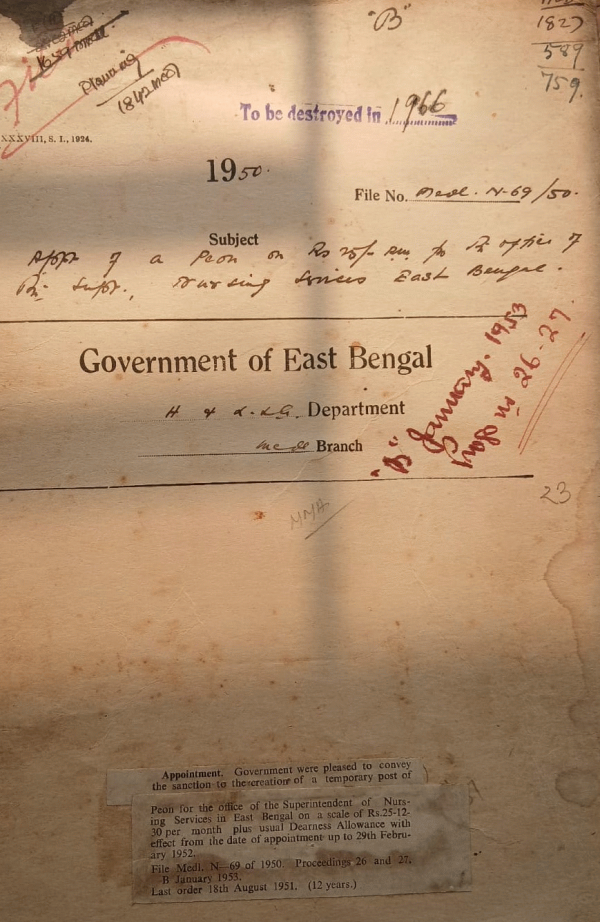 "B"
1827
589
759.
Planning
(842 Med)
To be destroyed in 1966
XXXVIII, S. I., 1924.
1950.
File No. Medl. N-69/50.
Subject
Appt of a Peon on Rs 25/- p.m. for the office of
the Supdt., Nursing Services East Bengal.
Government of East Bengal
H & L.S.G. Department
Medl Branch
"B" January. 1953
Progs no 26-27.
23
MMA
Appointment. Government were pleased to convey
the sanction to the creation of a temporary post of
Peon for the office of the Superintendent of Nurs-
ing Services in East Bengal on a scale of Rs.25-12-
30 per month plus usual Dearness Allowance with
effect from the date of appointment up to 29th Febru-
ary 1952.
File Medl. N—69 of 1950. Proceedings 26 and 27.
B January 1953.
Last order 18th August 1951. (12 years.)